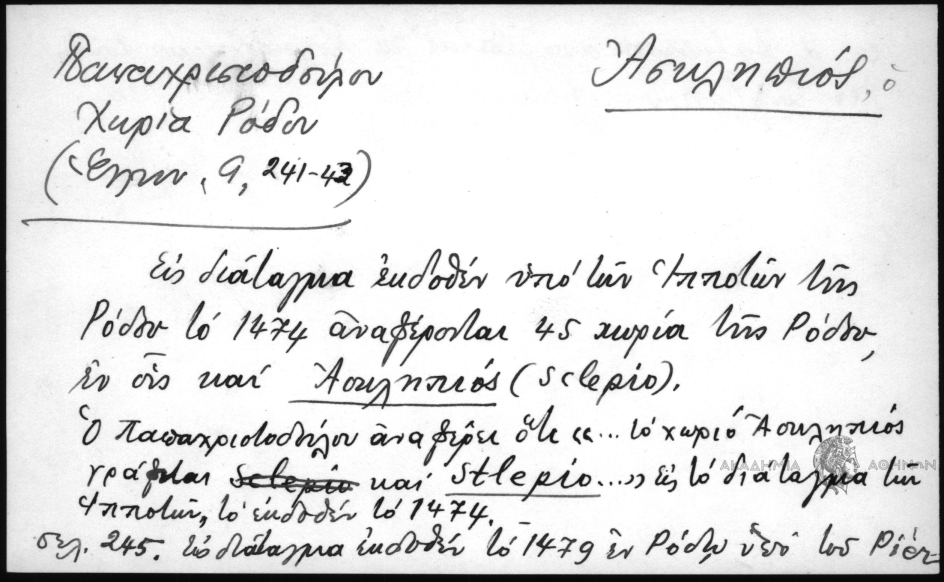 Παπαχριστοδούλου
Ἀσκληπιός, ὁ
Χωρία Ρόδου
241-43)
Εἰς διάταγμα ἐκδοθέν ὑπό τῶν Ἱπποτῶν τῆς
Ρόδου τό 1474 ἀναφέρονται 45 χωρία τῆς Ρόδου,
ἐν οἷς καί Ἀσκληπιός (Sclepio).
Ὁ Παπαχριστοδούλου ἀναφέρει ὅτι «... τό χωριό Ἀσκληπιός
γράφεται Sclepio καί Stlepio...» εἰς τό διάταγμα τῶν
Ἱπποτῶν, τό ἐκδοθέν τό 1474.
σελ. 245. Εἰς διάταγμα ἐκδοθέν τό 1479 ἐν Ρόδῳ ὑπό τοῦ
ΑΚΑΔΗΜΙΑ ΑΘΗΝΩΝ